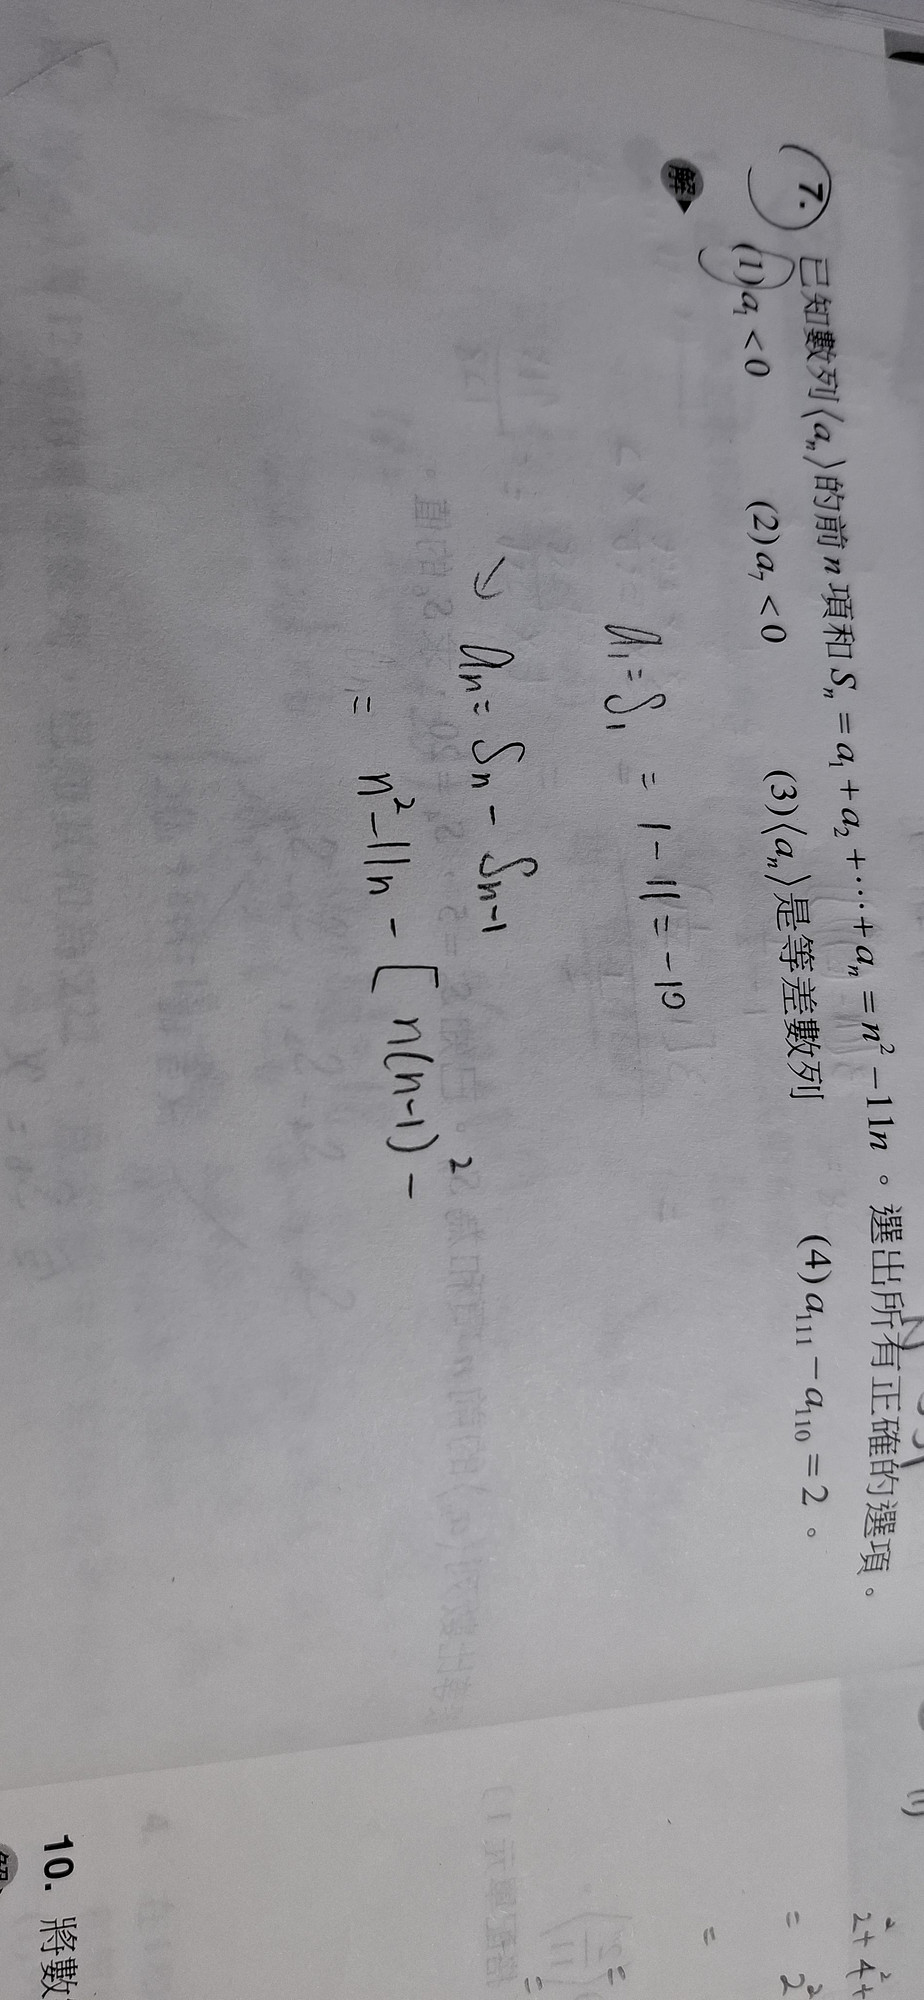 7. 已知數列⟨aₙ⟩的前n項和Sₙ=a₁+a₂+⋯+aₙ=n²−11n。選出所有正確的選項。
(1)a₁<0 (2)a₇<0 (3)⟨aₙ⟩是等差數列 (4)a₁₁₁−a₁₁₀=2。
解
a₁=S₁=1-11=-10
aₙ=Sₙ-Sₙ₋₁
= n²-11n-[n(n-1)²-
10. 將數
2²+4²+
= 2²
=